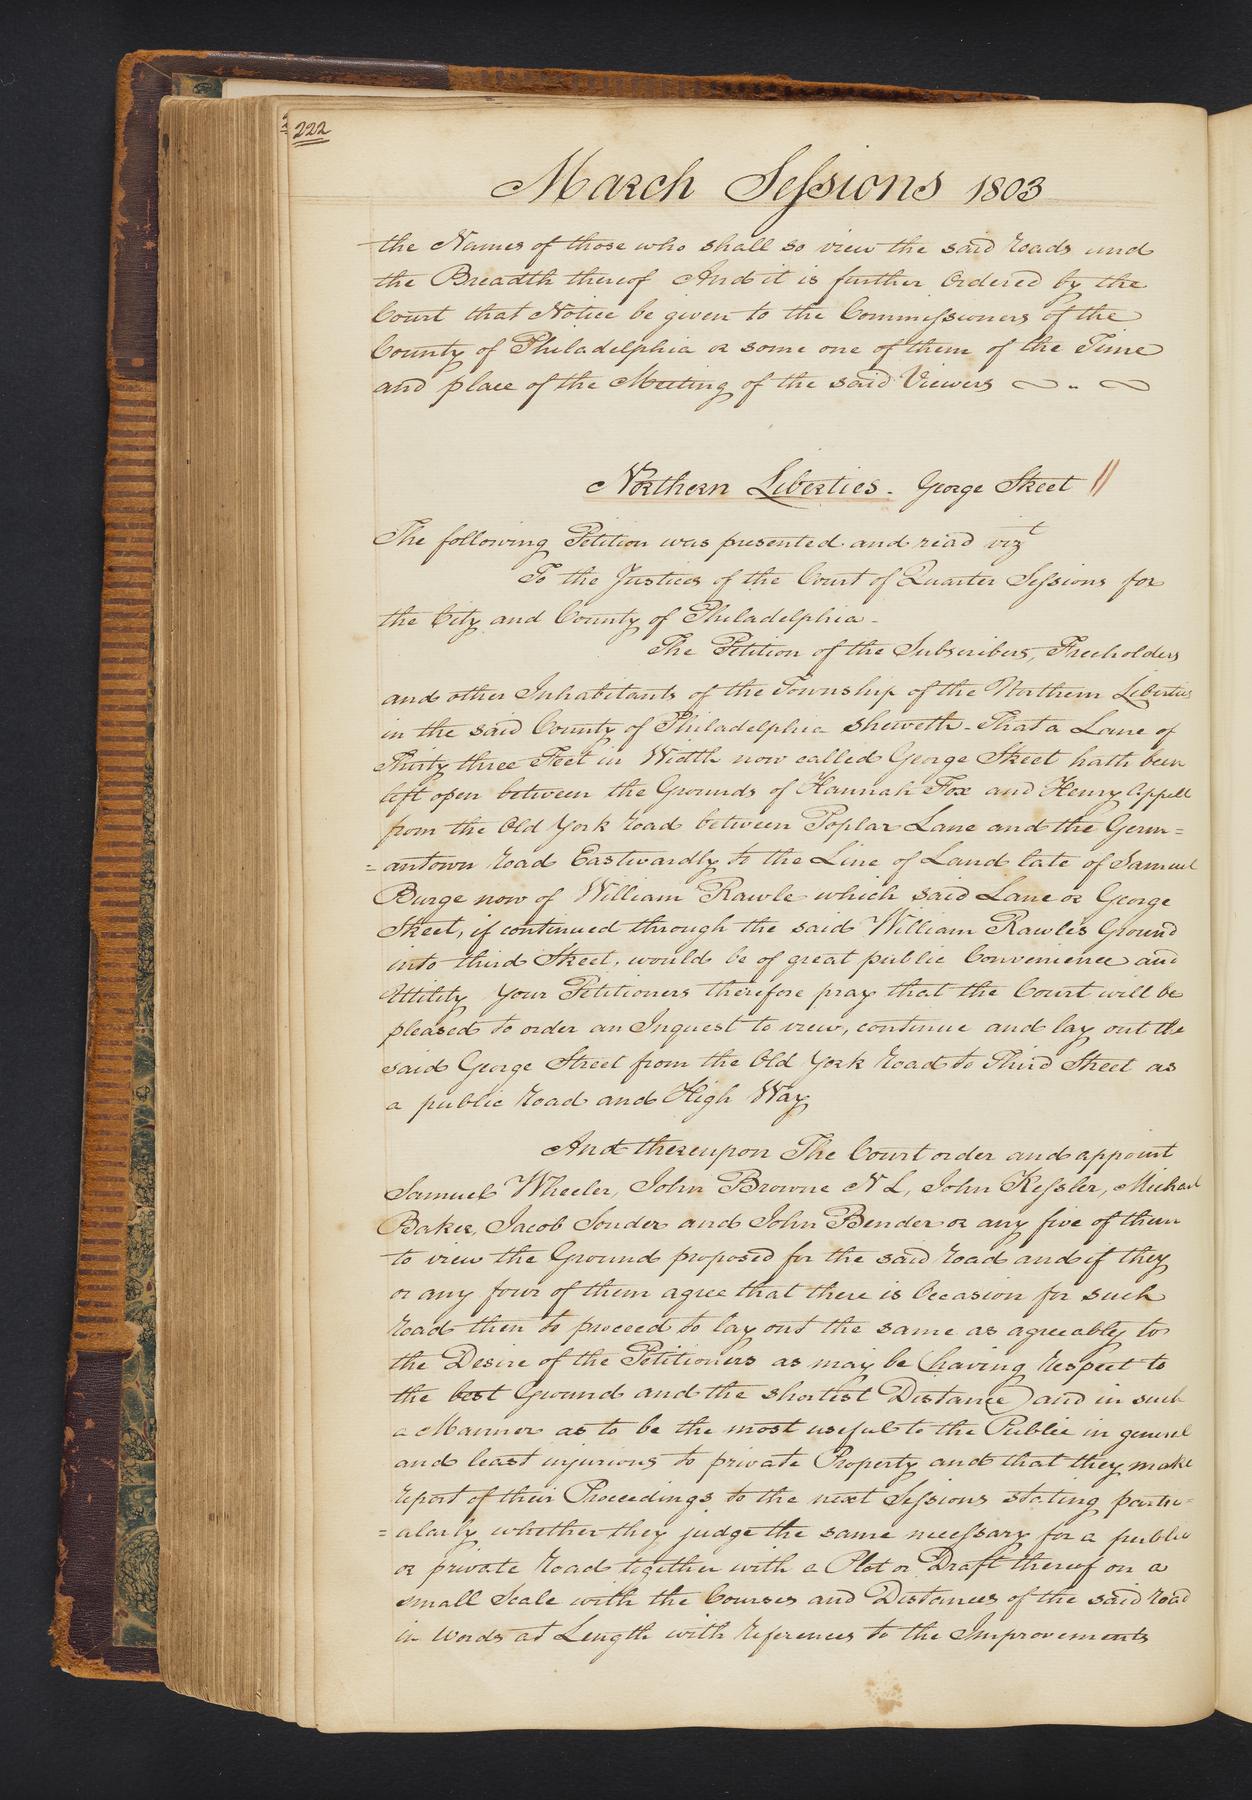 222
March Sessions 1803
the Names of those who shall so view the said Roads and
the Breadth thereof And it is further Ordered by the
Court that Notice be given to the Commissioners of the
County of Philadelphia or some one of them of the Time
and place of the Meeting of the said Viewers
Northern Liberties - George Street //
The following Petition was presented and read vizt
To the Justices of the Court of Quarter Sessions for
the City and County of Philadelphia -
The Petition of the Subscribers, Freeholders
and other Inhabitants of the Township of the Northern Liberties
in the said County of Philadelphia sheweth - That a Lane of
Thirty three Feet in Width now called George Street hath been
left open between the Grounds of Hannah Fox and Henry Appell
from the Old York Road between Poplar Lane and the Germ=
=antown Road Eastwardly to the Line of Land late of Samuel
Burge now of William Rawle which said Lane or George
Street, if continued through the said William Rawle's Ground
into third Street, would be of great public Convenience and
Utility Your Petitioners therefore pray that the Court will be
pleased to order an Inquest to view, continue and lay out the
said George Street from the Old York Road to Third Street as
a public Road and High Way
And thereupon The Court order and appoint
Samuel Wheeler, John Browne N L, John Kessler, Michael
Baker, Jacob Souder and John Bender or any five of them
to view the Ground proposed for the said Road and if they
or any four of them agree that there is Occasion for such
Road then to proceed to lay out the same as agreeably to
the Desire of the Petitioners as may be (having Respect to
the best Ground and the shortest Distance) and in such
a Manner as to be the most useful to the Public in general
and least injurious to private Property and that they make
report of their Proceedings to the next Sessions stating partic=
=ularly whether they judge the same necessary for a public
or private Road together with a Plot or Draft thereof on a
small Scale with the Courses and Distances of the said Road
in Words at Length with References to the Improvements